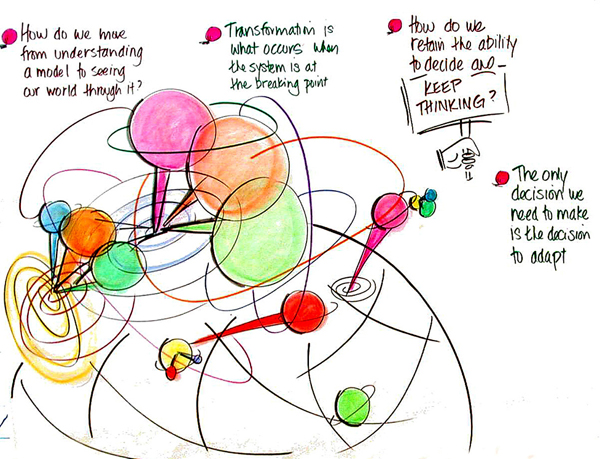 How do we move
from understanding
a model to seeing
our world through it?
Transformation is
what occurs when
the system is at
the breaking point
How do we
retain the ability
to decide and
KEEP
THINKING?
The only
decision we
need to make
is the decision
to adapt